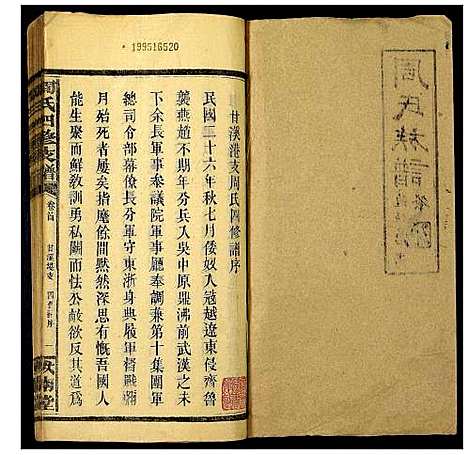 周氏族譜
199516520
甘溪港支周氏四修譜序
民國二十六年秋七月倭奴入冦越遼東侵齊魯
襲燕趙不期年分兵入吳中原鼎沸前武漢之未
下余長軍事參議院軍事廳奉調兼第十集團軍
總司令部幕僚長軍守東浙身與典屢軍督戰
月殆死者屢矣指餘間黙然深思有慨吾國人
能生聚而鮮敎訓勇私鬭而怯公敵欲反其道爲
周氏四修支譜
卷首
甘溪港支
四修新序
一
堂